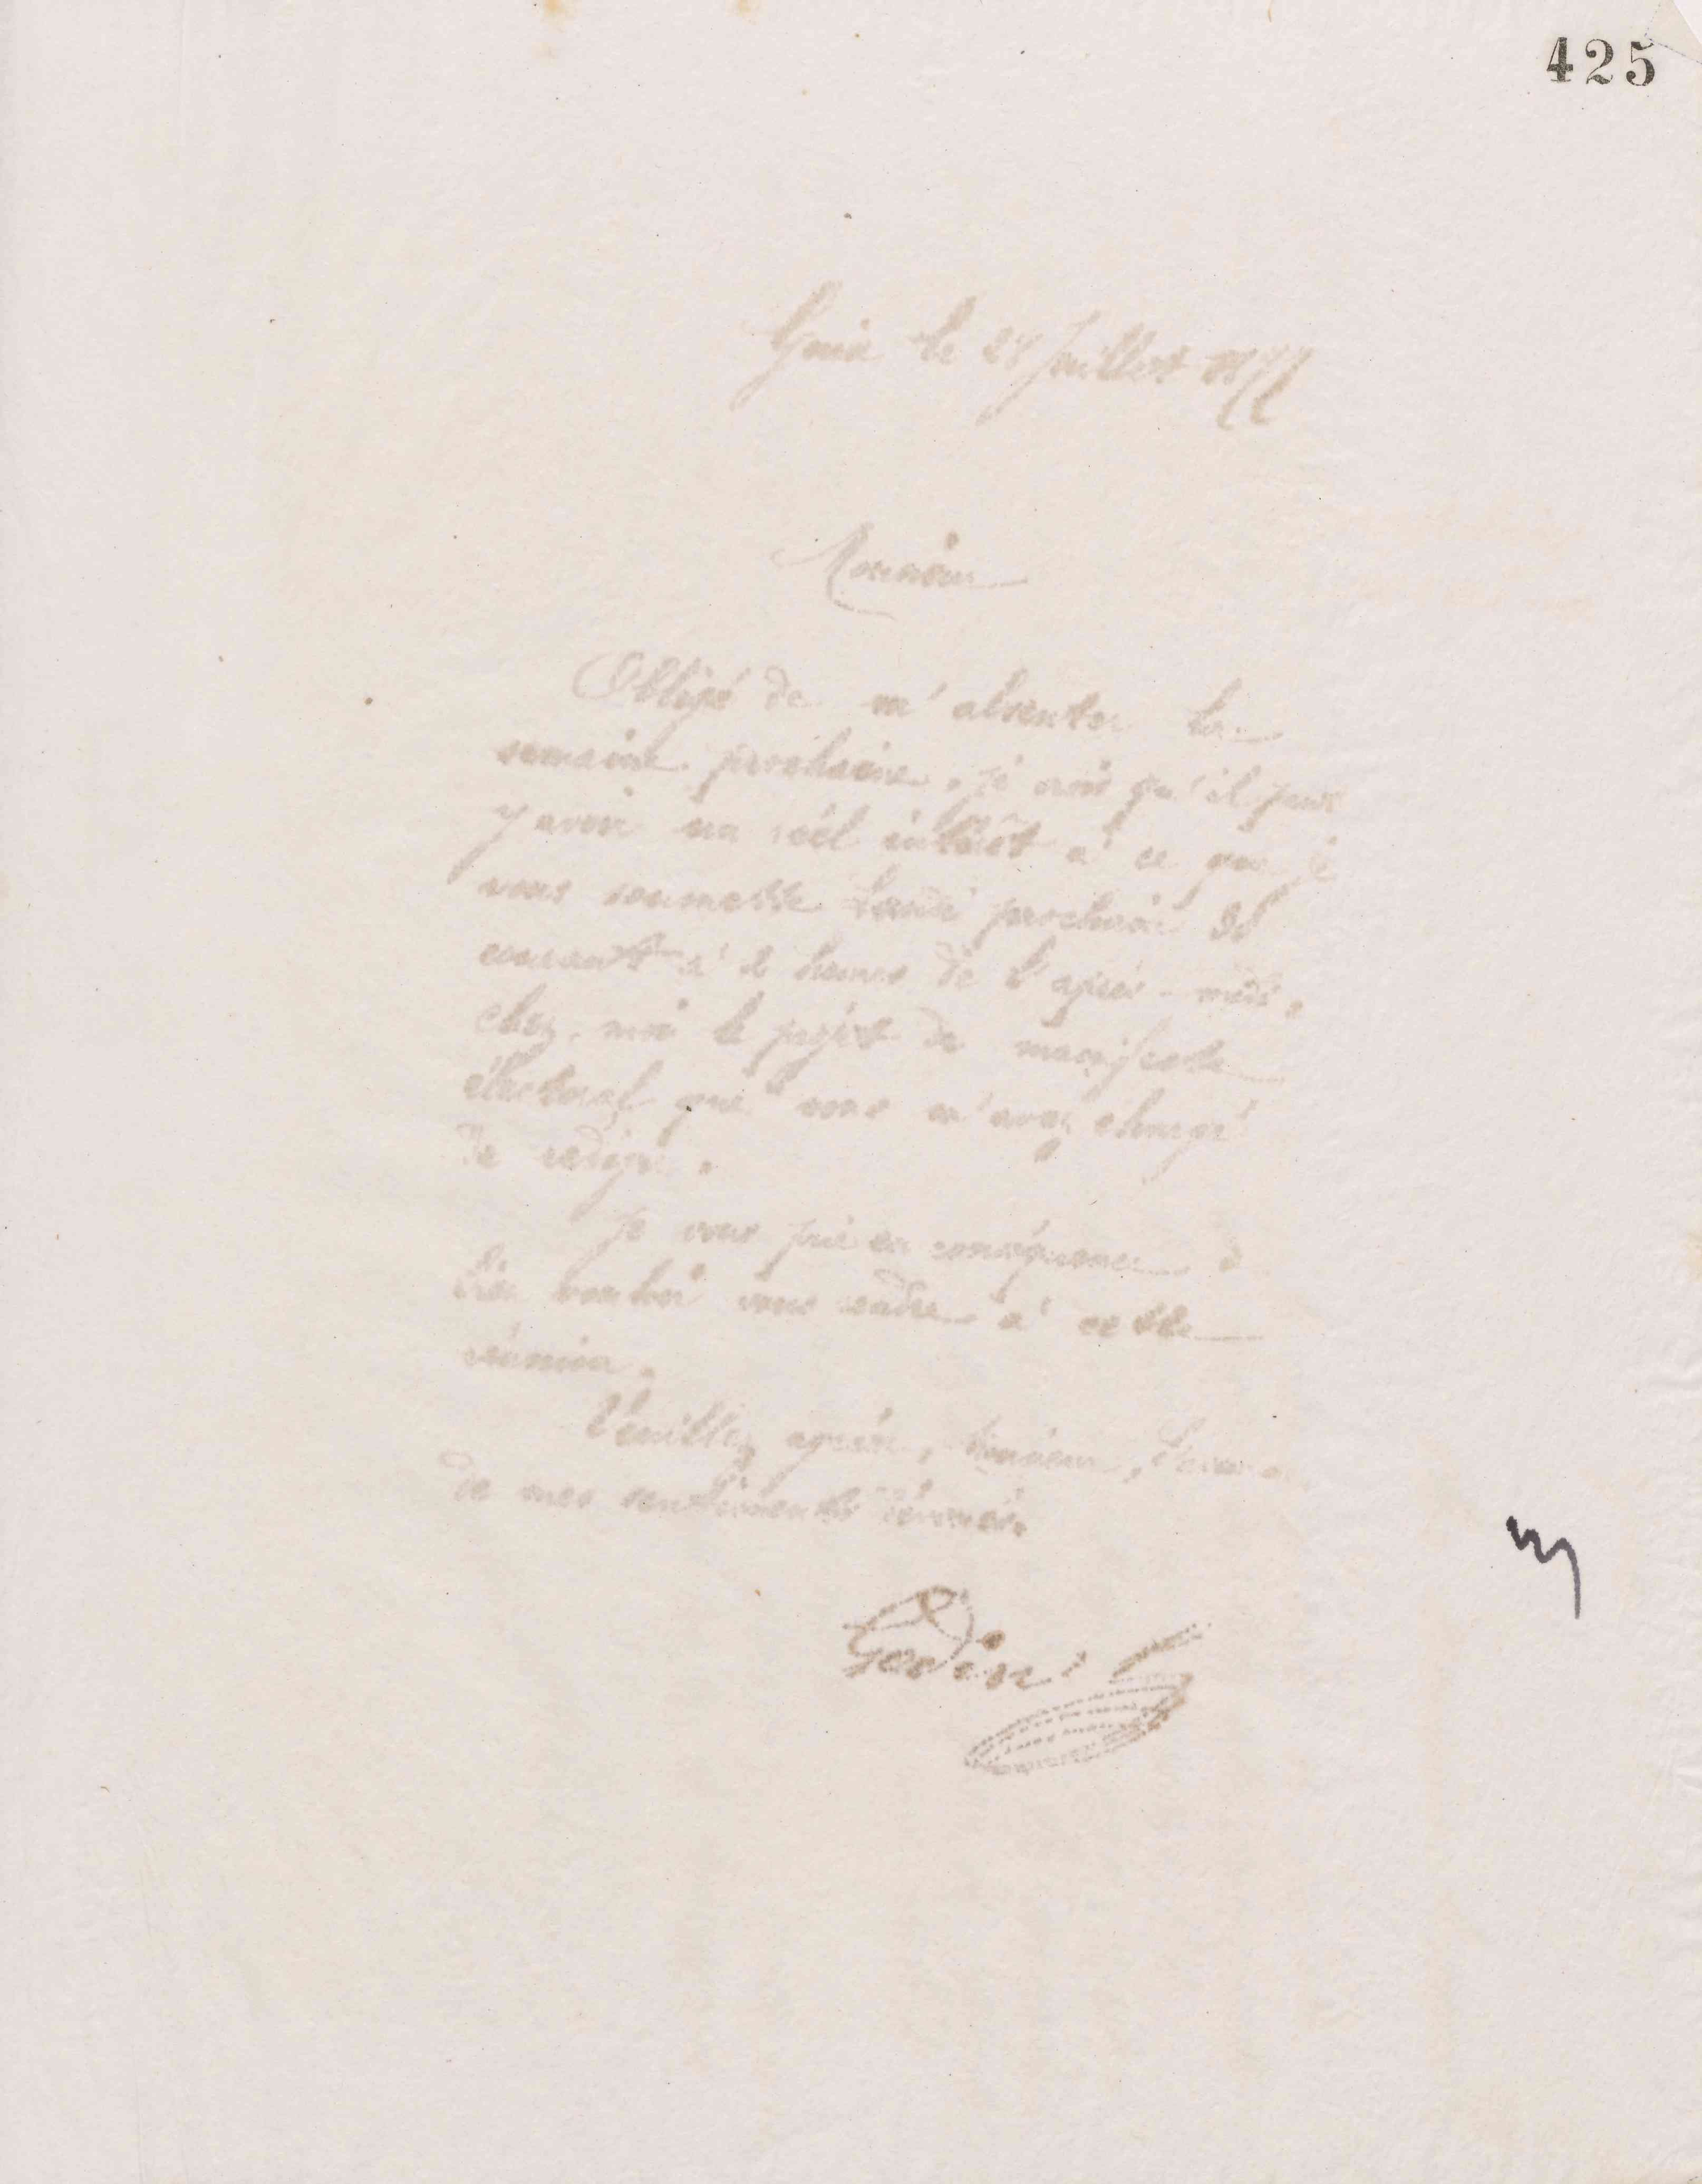 425
Guise le 28 Juillet 1877
Monsieur
Obligé de m'absenter la
semaine prochaine, je crois qu'il peut
y avoir un réel intérêt à ce que je
vous soumette Lundi prochain
courant à 2 heures de l'après-midi,
chez moi le projet de manifeste
électoral que vous m'avez chargé
de rédiger.
Je vous prie en conséquence de
bien vouloir vous rendre à cette
réunion.
Veuillez agréer, Monsieur,
de mes sentiments dévoués.
Godin